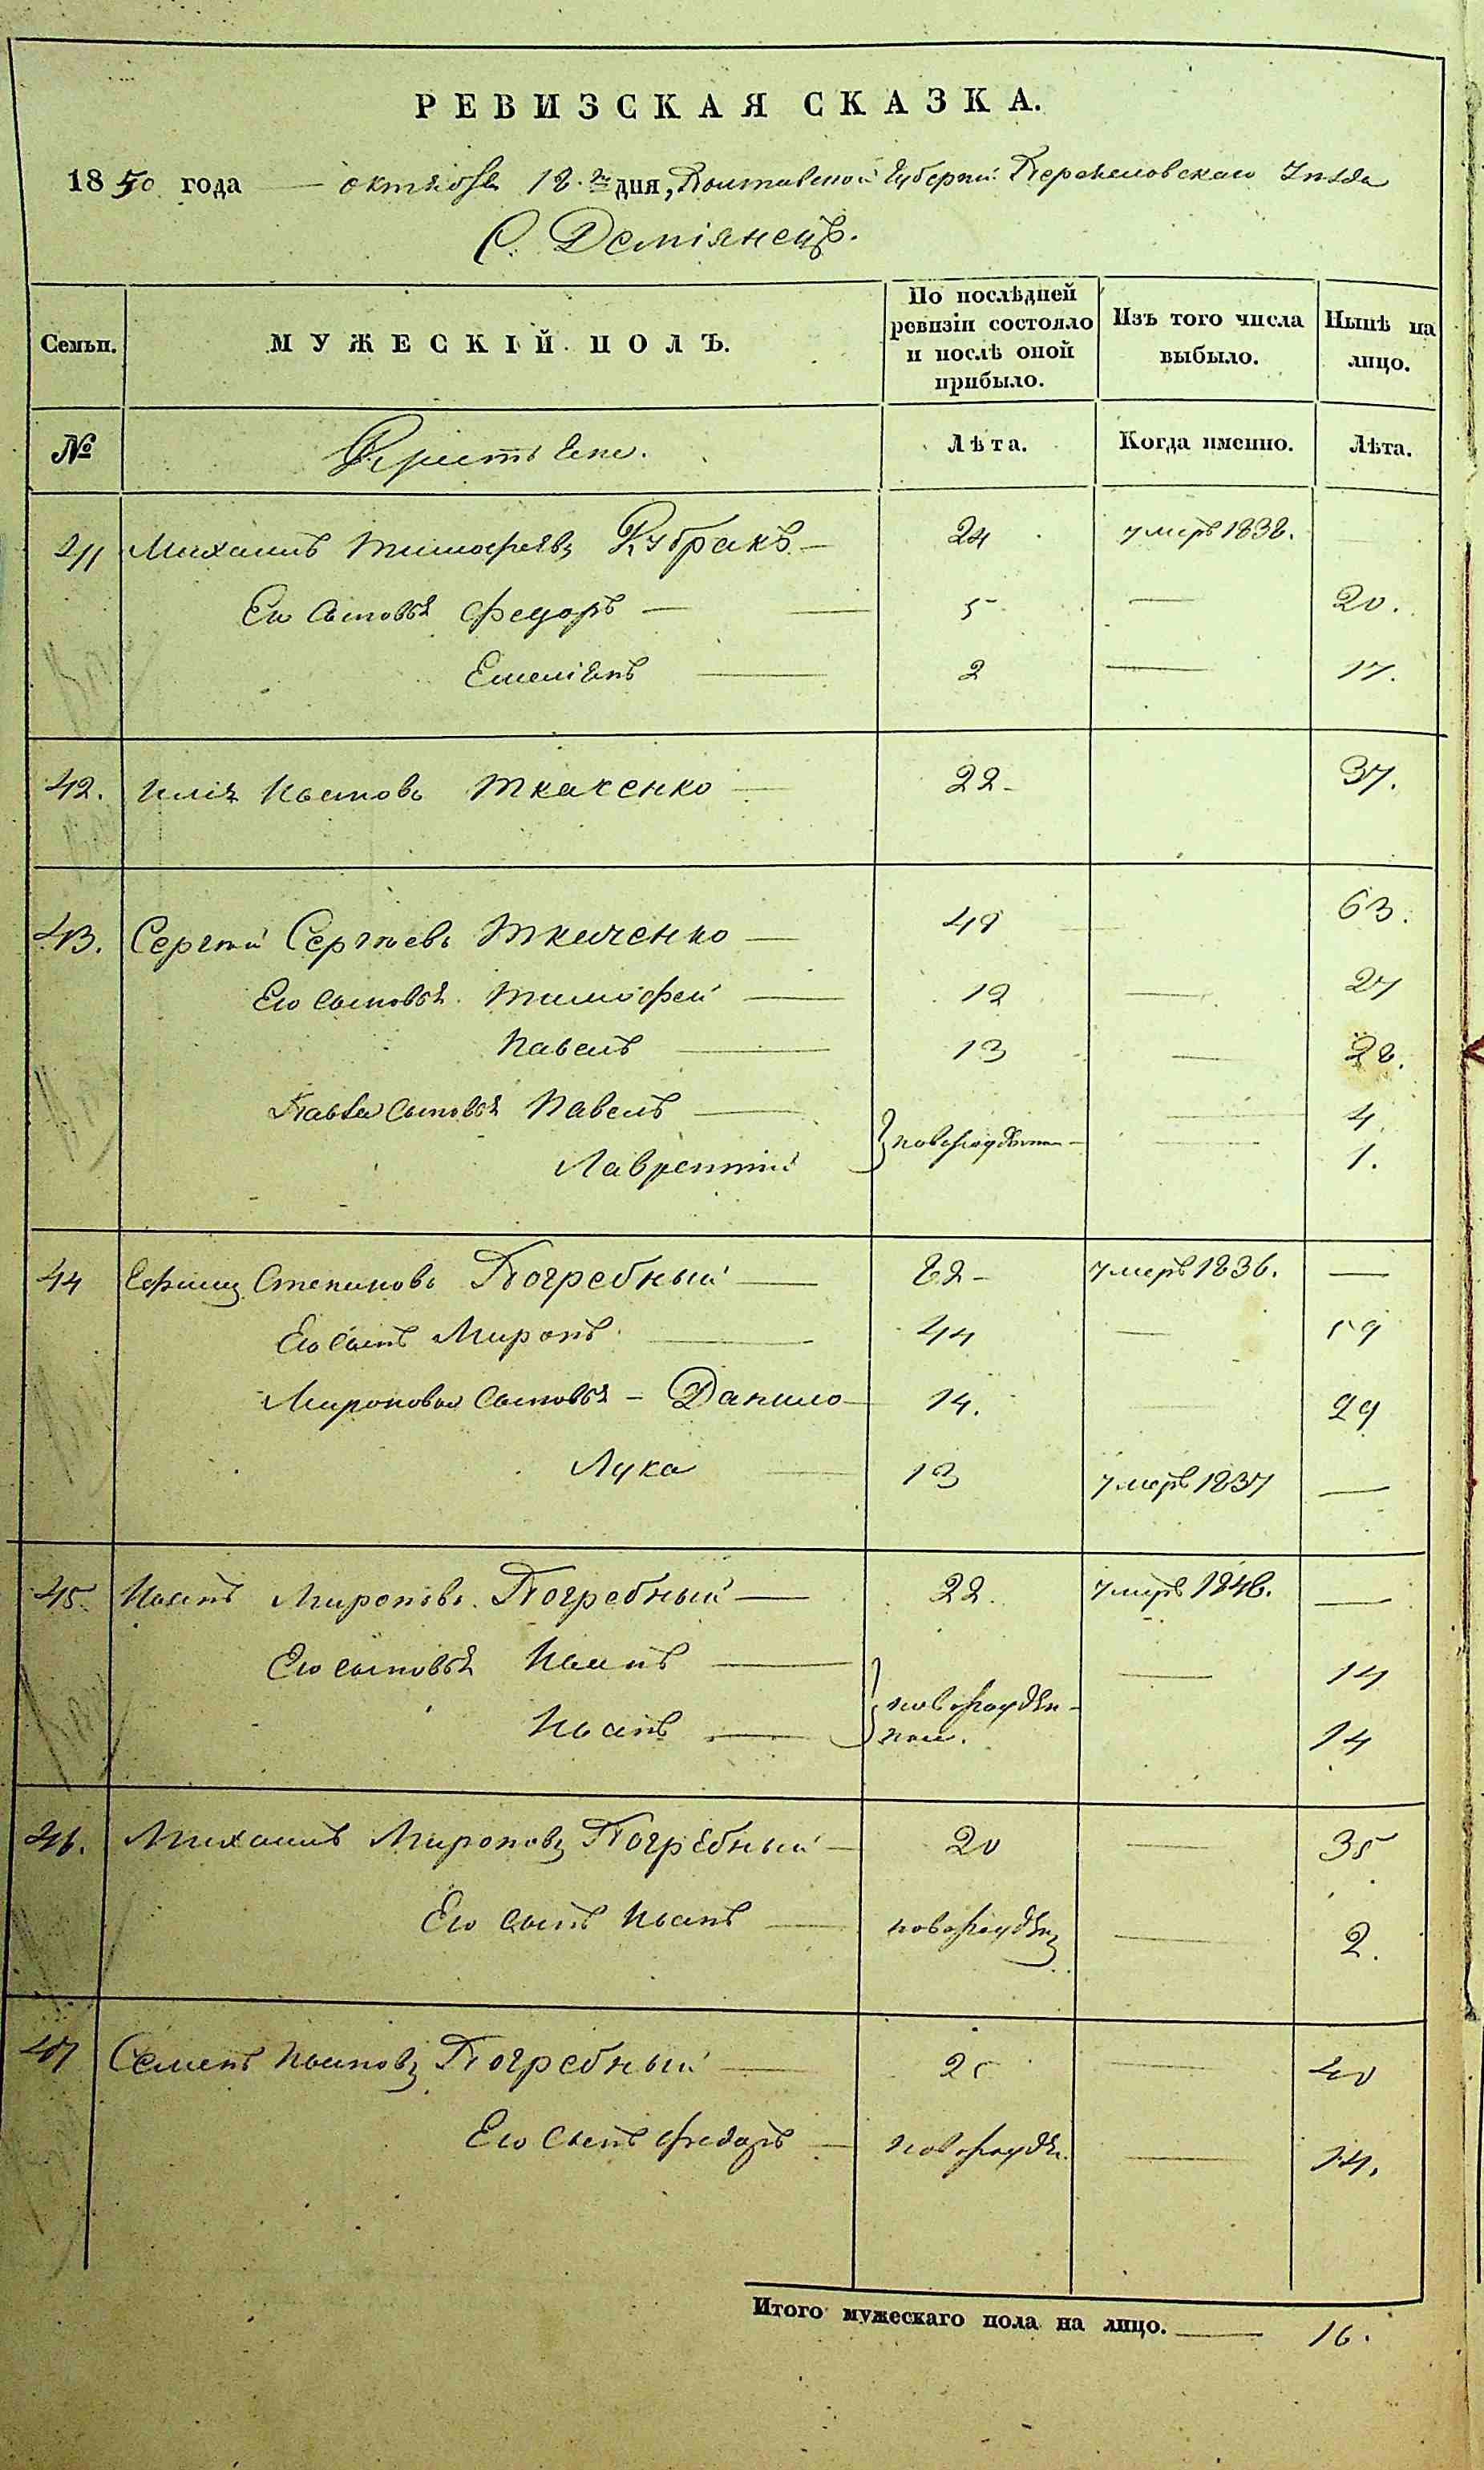 РЕВИЗСКАЯ СКАЗКА.
1850 года — октября 18.го дня, Полтавской Губерніи Переяславского Уѣзда
С. Деміянецъ.
Семьи. МУЖЕСКІЙ ПОЛЪ. По послѣдней ревизіи состояло и послѣ оной прибыло. Изъ того числа выбыло. Нынѣ на лицо.
№ Крестьяне. Лѣта. Когда именно. Лѣта.
41 Михаилъ Тимофеевъ Кубракъ — 24 умеръ 1838.
Его сыновья Федоръ — 5 — 20.
Емеліянъ — 2 — 17.
42. Илія Ивановъ Ткаченко — 22 37.
43. Сергѣй Сергѣевъ Ткаченко — 48 63.
Его сыновья Тимофей — 12 — 27
Павелъ — 13 — 28.
Павла сыновья Павелъ — новорожденные — 4.
Лаврентій — 1.
44 Ефимъ Степановъ Погребный — 82 умеръ 1836. —
Его сынъ Миронъ — 44 — 59
Мироновы сыновья — Данило 14. — 29
Лука — 13 умеръ 1837 —
45. Иванъ Мироновъ Погребный — 22. умеръ 1846. —
Его сыновья Иванъ — новорожден- — 14
Иванъ — ные. 14
46. Михаилъ Мироновъ Погребный — 20 — 35
Его сынъ Иванъ — новорожден — 2.
47 Семенъ Ивановъ Погребный — 25 — 40
Его сынъ Федоръ — новорожден. — 14.
Итого мужескаго пола на лицо. — 16.